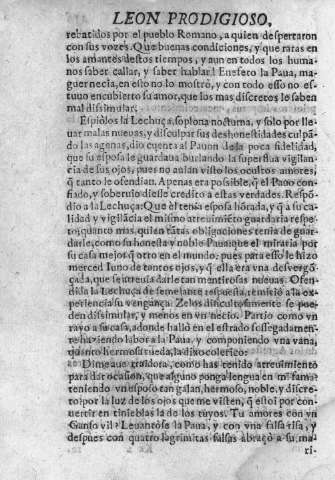 LEON PRODIGIOSO,
rebatidos por el pueblo Romano, a quien despertaron
con sus vozes. Que buenas condiciones, y que raras en
los amantes destos tiempos, y aun en todos los huma-
nos saber callar, y saber hablar! Enefeto la Paua, ma-
guer necia, en esto no lo mostrò, y con todo esso no es-
tuuo encubierto su amor, que los mas discretos le saben
mal dissimular.
Espiòlos la Lechuça, soplona nocturna, y solo por lle-
uar malas nueuas, y disculpar sus deshonestidades culpã-
do las agenas, dio cuenta al Pauon de la poca fidelidad,
que su esposa le guardaua burlando la superflua vigilan-
cia de sus ojos, pues no auian visto los ocultos amores,
q̃ tanto le ofendian. Apenas era possible, q̃ el Pauo con-
fiado, y soberuio diesse credito a estas verdades. Respõ-
dio a la Lechuça: Que èl tenia esposa hõrada, y q̃ a su ca-
lidad y vigilãcia el mismo atreuimiẽto guardaria respe-
to; quanto mas, quien tãtas obligaciones tenia de guar-
darle, como su honesta y noble Paua; que el miraria por
su casa mejor q̃ otro en el mundo, pues para esso le hizo
merced Iuno de tantos ojos, y q̃ ella era vna desvergõ-
çada, que se atreuia a darle tan mentirosas nueuas. Ofen-
dida la Lechuça de semejante respuesta, remitiò a la ex-
periencia su vengança. Zelos dificultosamente se pue-
den dissimular, y menos en vn necio. Partio como vn
rayo a su casa, adonde hallò en el estrado sossegadamen-
te haziendo labor a la Paua, y componiendo vna vana,
quanto hermosa rueda, la dixo colerico:
Dime aue traidora, como has tenido atreuimiento
para dar ocasion, que alguno ponga lengua en mi fama
teniendo vn esposo tan galan, hermoso, noble, y discre-
to; por la luz de los ojos que me visten, q̃ estoi por con-
uertir en tinieblas la de los tuyos. Tu amores con vn
Ganso vil? Leuantòse la Paua, y con vna falsa risa, y
despues con quatro lagrimitas falsas abraçò a su ma-
ri-